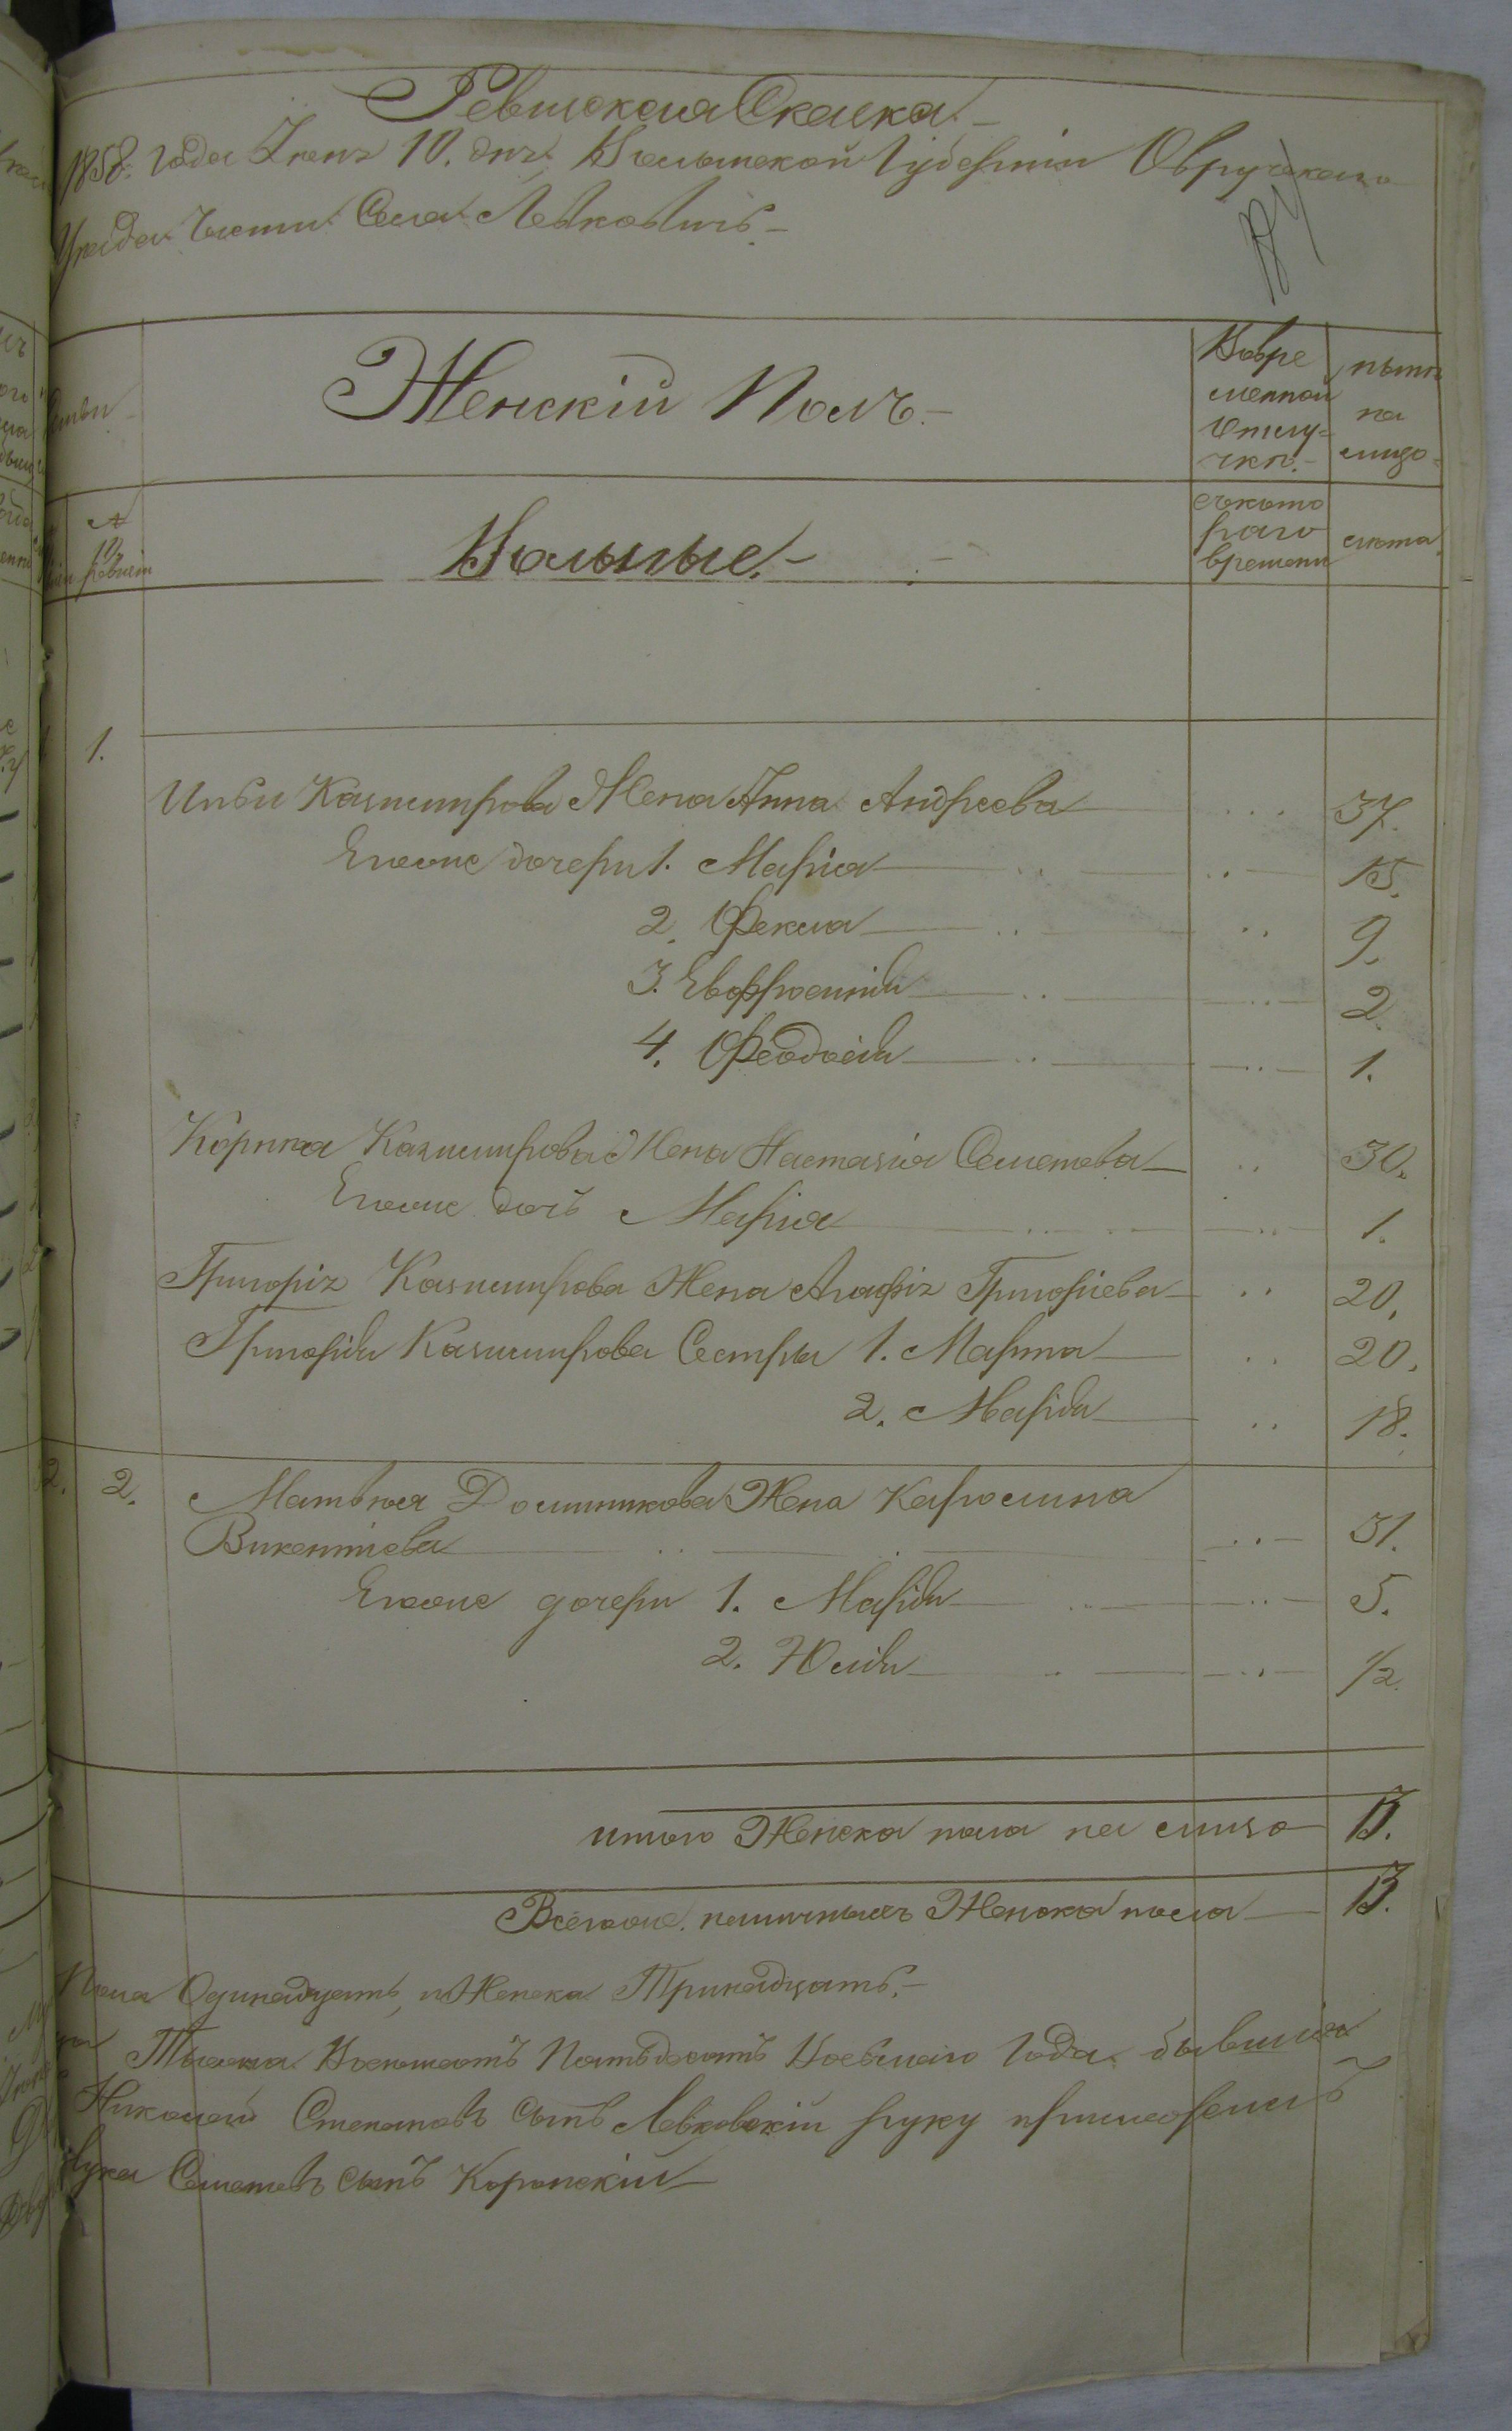 Ревизская Сказка.
1858. года Іюня 10. дня. Волынской Губерніи Овручскаго
Уезда части Села Левковичь.
Женскій Полъ.
Во вре
менной
отлу=
чкѣ.
нынѣ
на
лицо
10
ревизіи
Вольные.
съ кото
раго
времени
лѣта
1.
Ильи Казимирова Жена Анна Андреева ... 37.
Егоже дочери 1. Марія .. 15.
2. Фекла .. 9.
3. Евфросинія .. 2.
4. Феодосія .. 1.
Корнила Казимирова Жена Настазія Семенова .. 30.
Егоже дочь Марія .. 1.
Григорія Казимирова Жена Агафія Григоріева .. 20.
Григорія Казимирова Сестры 1. Марта .. 20.
2. Марія .. 18.
2. 2. Матвѣя Доминикова Жена Каролина
Викентіева .. 31.
Егоже дочери 1. Марія .. 5.
2. Юлія .. 1/2.
итого Женска пола на лицо 13.
Всегоже наличныхъ Женска пола 13.
Пола Одинадцать, и Женска Тринадцать.
Тысяча Восемьсотъ Пятьдесятъ Восьмаго Года.
Николай Степановъ сынъ Левковскій руку приложилъ
Лука Семеновъ сынъ Коронскій